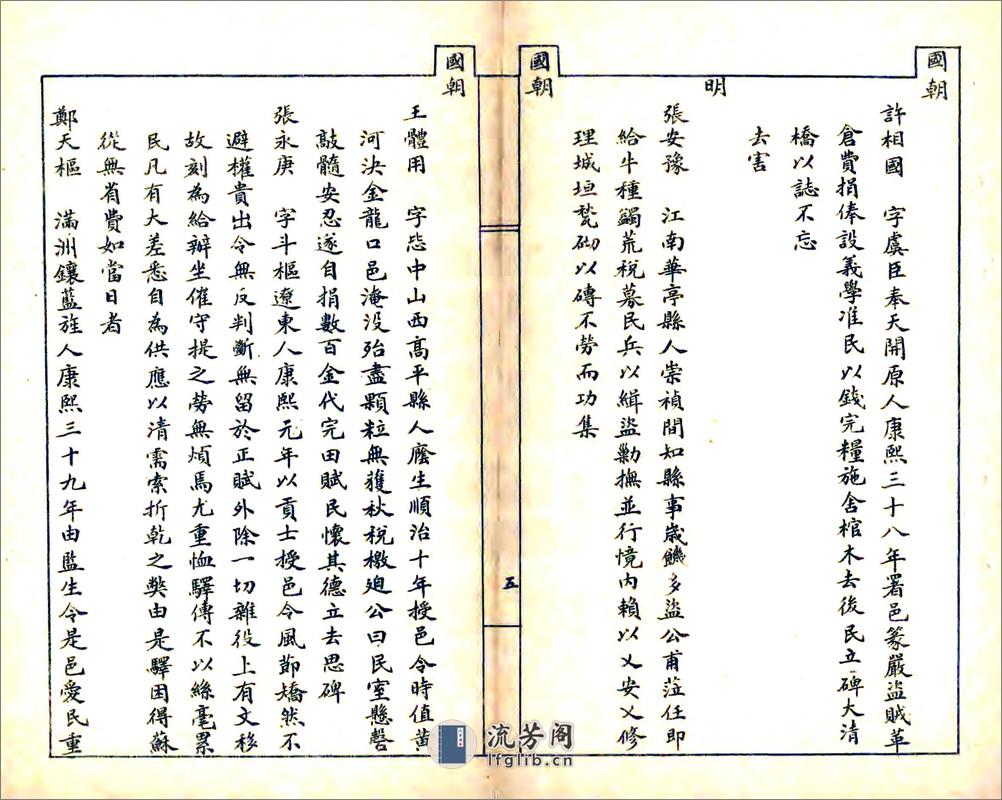 國朝
許相國 字虞臣奉天開原人康熙三十八年署邑篆嚴盜賊革
倉費捐俸設義學准民以錢完糧施舍棺木去後民立碑大清
橋以誌不忘
去害
明
張安豫 江南華亭縣人崇禎間知縣事歲饑多盜公甫蒞任即
給牛種蠲荒稅募民兵以緝盜勦撫並行境內賴以乂安又修
理城垣甃砌以磚不勞而功集
國朝
五
國朝
王體用 字中山西高平縣人廕生順治十年授邑令時值黃
河決金龍口邑淹没殆盡顆粒無獲秋稅檄迫公曰民室懸罄
敲髓安忍遂自捐數百金代完田賦民懷其德立去思碑
張永庚 字斗樞遼東人康熙元年以貢士授邑令風節矯然不
避權貴出令無反判斷無留於正賦外除一切雜役上有文移
故刻為給辦坐催守提之勞無煩焉尤重恤驛傳不以絲毫累
民凡有大差悉自為供應以清需索折乾之獘由是驛困得蘇
從無省費如當日者
鄭天樞 滿洲鑲藍旌人康熙三十九年由監生令是邑愛民重
流芳阁
lfglib.cn